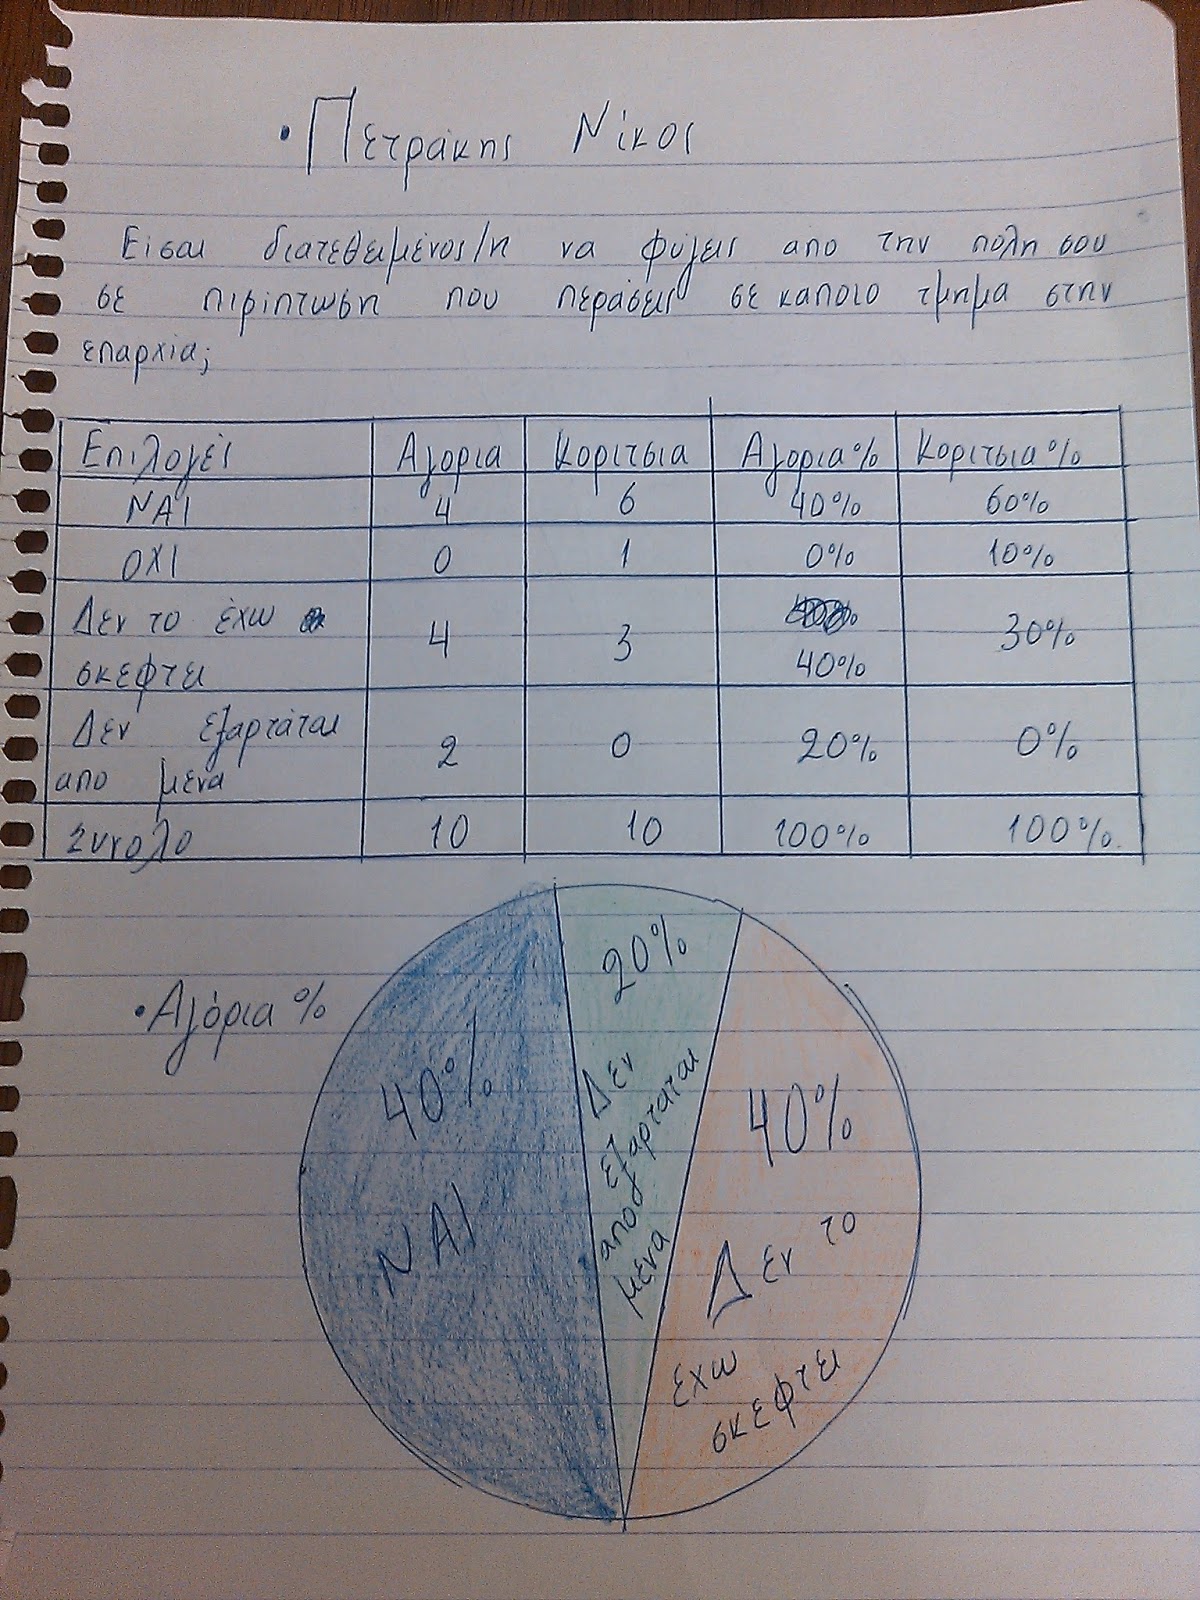 • Πετράκης Νίκος
Είσαι διατεθειμένος/η να φύγεις απο την πόλη σου
σε πιριπτωση που περάσεις σε καποιο τμημα στην
επαρχία;
Επιλογές Αγορια Κοριτσια Αγορια% Κοριτσια%
ΝΑΙ 4 6 40% 60%
ΟΧΙ 0 1 0% 10%
Δεν το έχω
σκεφτει 4 3 40% 30%
Δεν εξαρτάται
απο μενα 2 0 20% 0%
Συνολο 10 10 100% 100%
• Αγόρια %
40%
ΝΑΙ
20%
Δεν
εξαρταται
απο
μενα
40%
Δεν το
εχω
σκεφτει